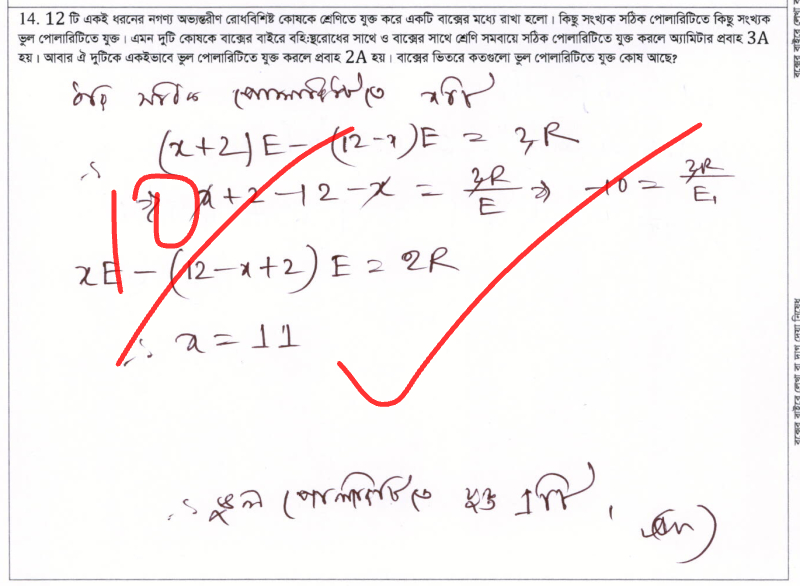 14. 12 টি একই ধরনের নগণ্য অভ্যন্তরীণ রোধবিশিষ্ট কোষকে শ্রেণিতে যুক্ত করে একটি বাক্সের মধ্যে রাখা হলো। কিছু সংখ্যক সঠিক পোলারিটিতে কিছু সংখ্যক
ভুল পোলারিটিতে যুক্ত। এমন দুটি কোষকে বাক্সের বাইরে বহিঃস্থরোধের সাথে ও বাক্সের সাথে শ্রেণি সমবায়ে সঠিক পোলারিটিতে যুক্ত করলে অ্যামিটার প্রবাহ 3A
হয়। আবার ঐ দুটিকে একইভাবে ভুল পোলারিটিতে যুক্ত করলে প্রবাহ 2A হয়। বাক্সের ভিতরে কতগুলো ভুল পোলারিটিতে যুক্ত কোষ আছে?
ধরি সঠিক পোলারিটিতে xটি
∴ (x+2)E - (12-x)E = 3R
⇒ x+2-12-x = 3R/E ⇒ -10 = 3R/E,
xE - (12-x+2)E = 2R
∴ x = 11
∴ ভুল পোলারিটিতে যুক্ত 1টি। (An)
10